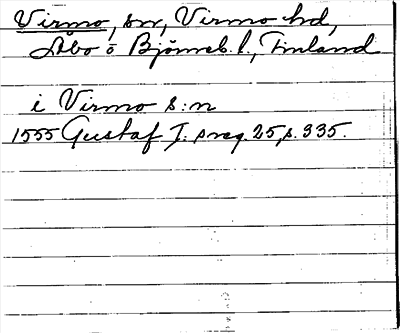 Virmo, sn, Virmo hd,
Åbo o Björneb. l., Finland
i Virmo s:n
1555 Gustaf I. s reg. 25, s. 335.